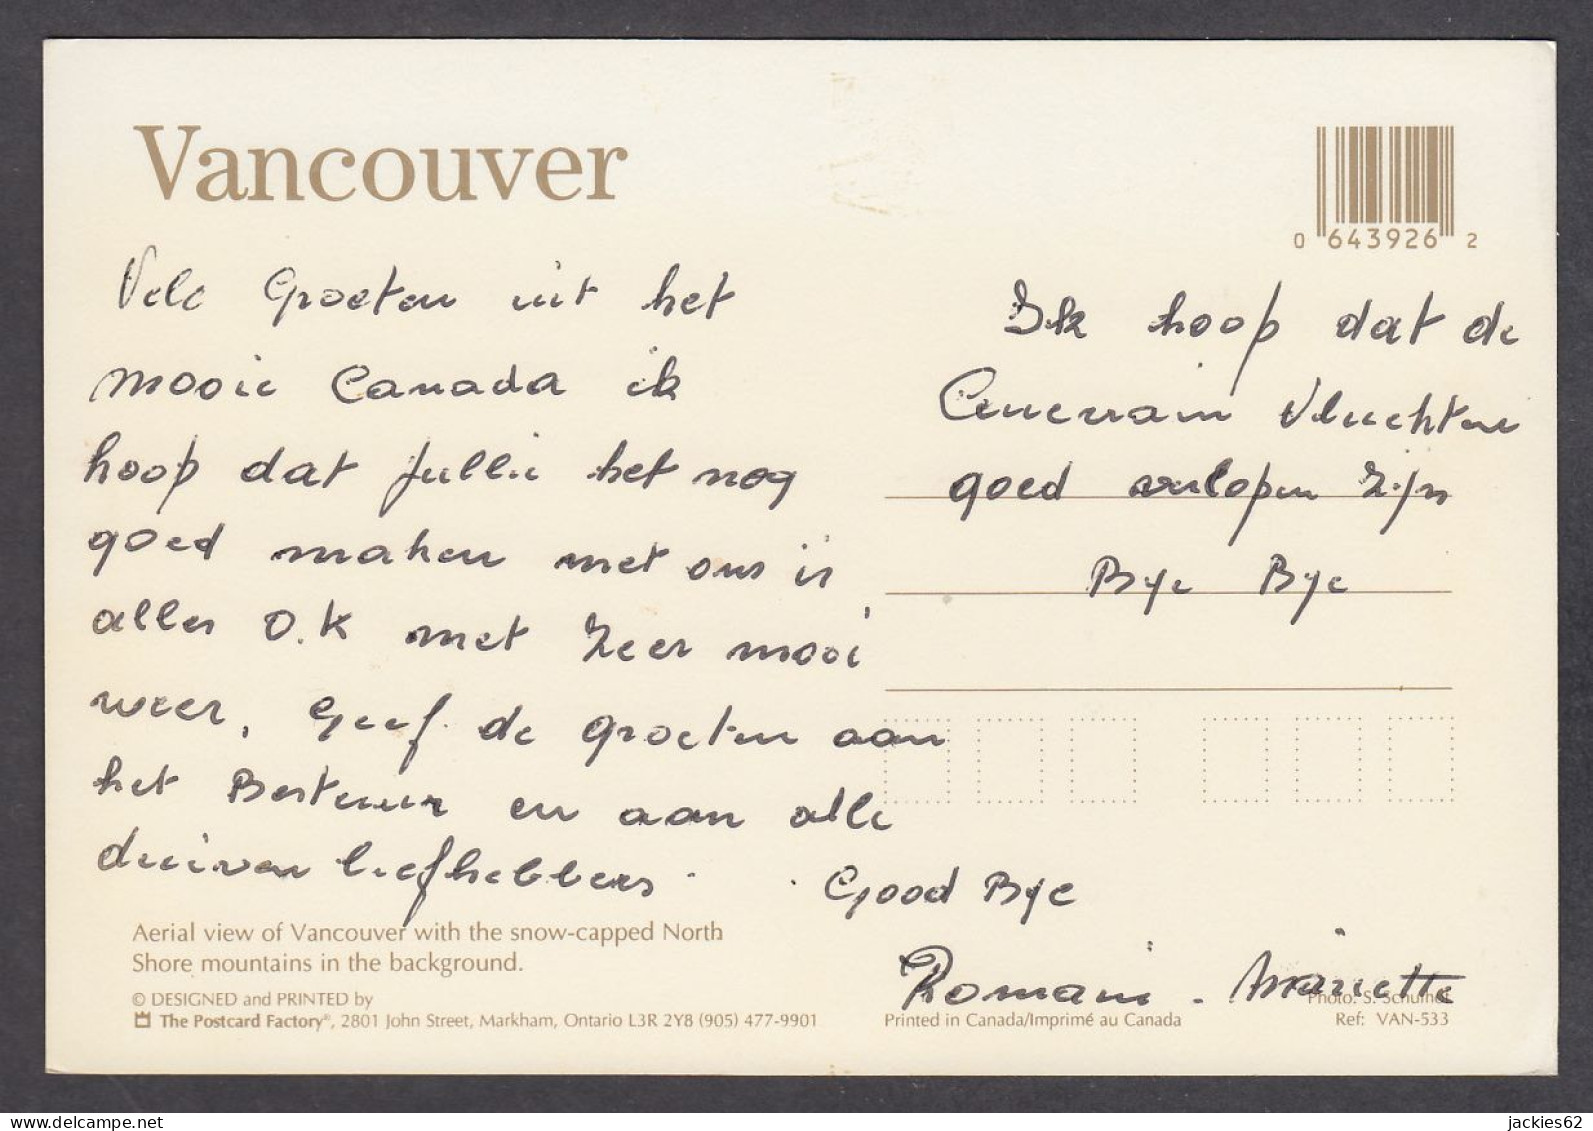 Vancouver
0 643926 2
Vele Groeten uit het
mooie Canada ik
hoop dat jullie het nog
goed maken met ons is
alles O.K met zeer mooi
weer, Geef de groeten aan
het Bestuur en aan alle
duiven liefhebbers.
Ik hoop dat de
Vluchten
goed verlopen zijn
Bye Bye
Good Bye
Romain - Mariette
Aerial view of Vancouver with the snow-capped North
Shore mountains in the background.
© DESIGNED and PRINTED by
The Postcard Factory®, 2801 John Street, Markham, Ontario L3R 2Y8 (905) 477-9901
Printed in Canada/Imprimé au Canada
Photo: S. Schulhof
Ref: VAN-533
jackies62